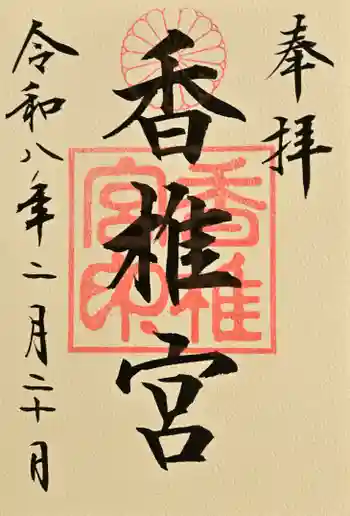 奉拝
香椎宮
令和八年二月二十日
香椎
宮印